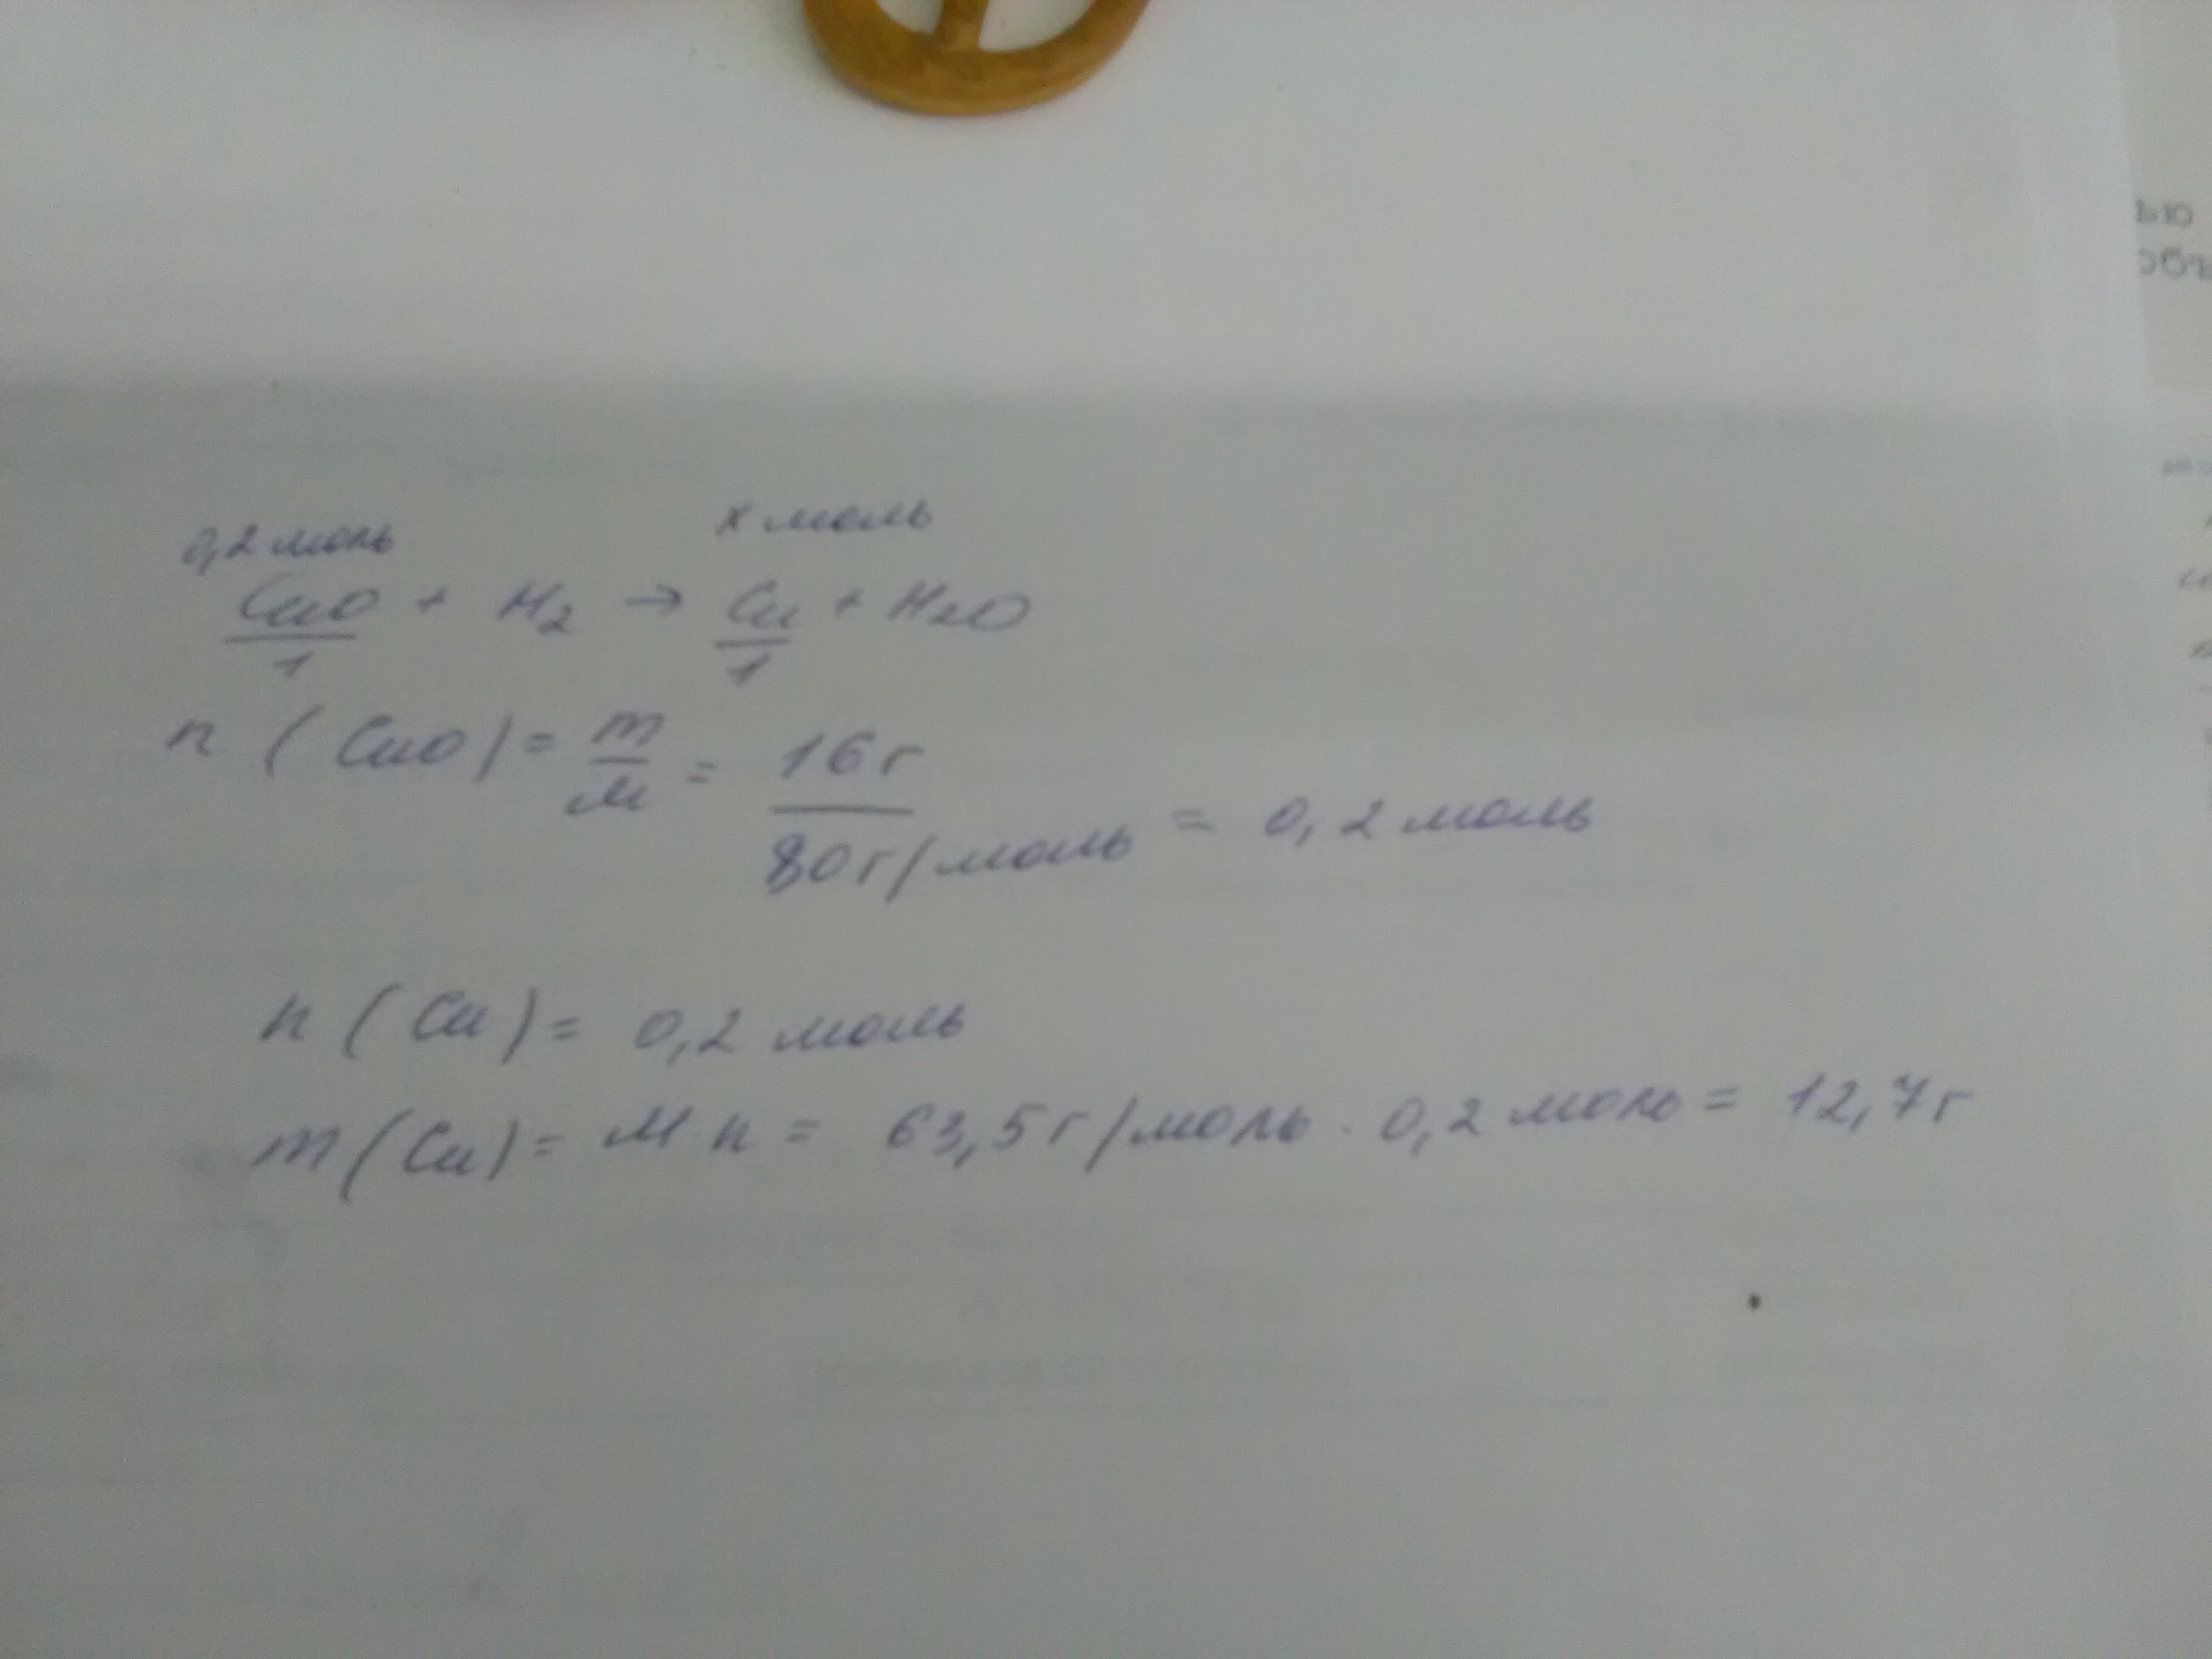 0,2 моль x моль
CuO + H2 → Cu + H2O
1 1
n (CuO) = m/M = 16 г / 80 г/моль = 0,2 моль
n (Cu) = 0,2 моль
m (Cu) = M n = 63,5 г/моль · 0,2 моль = 12,7 г